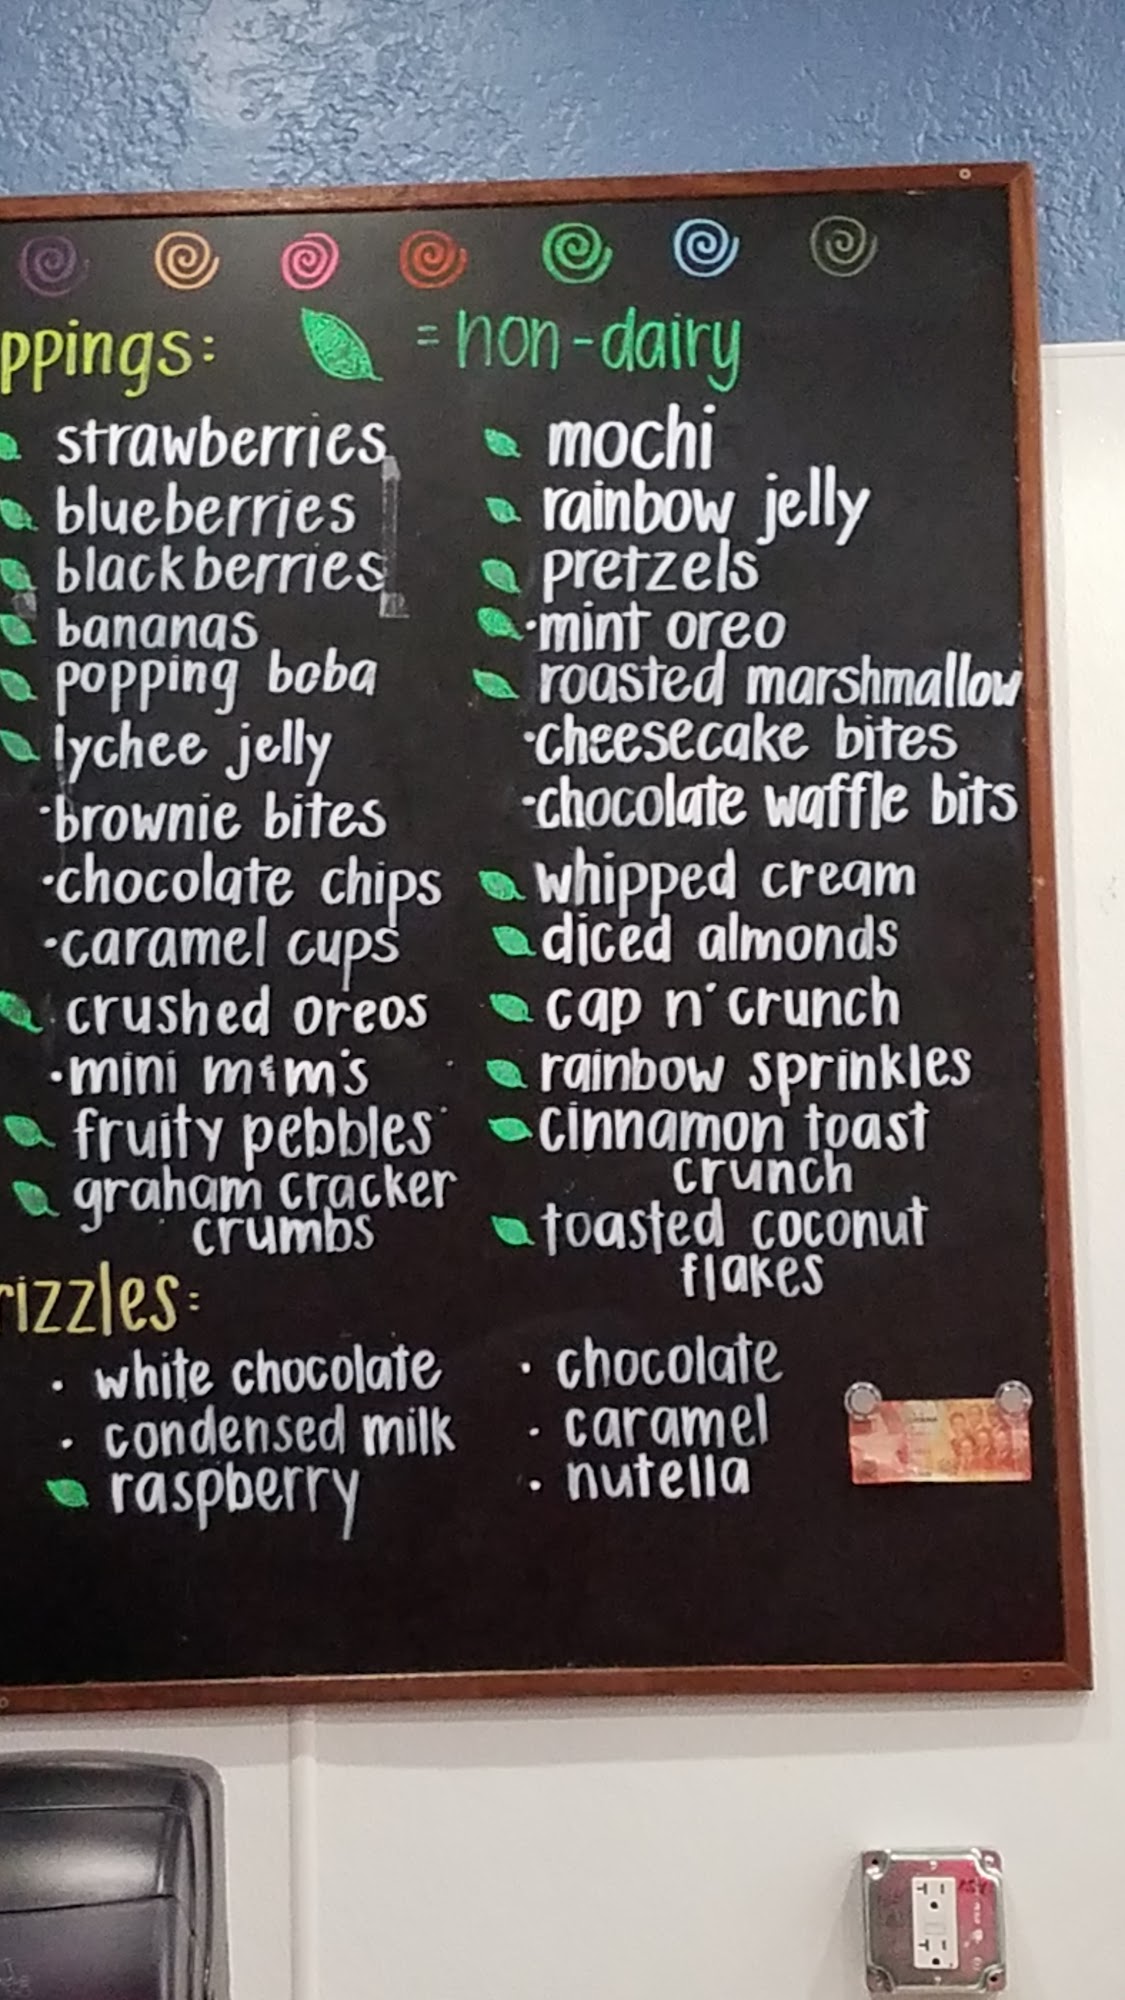 ppings: = non-dairy
strawberries
blueberries
blackberries
bananas
popping boba
lychee jelly
·brownie bites
·chocolate chips
·caramel cups
crushed oreos
·mini m&m's
fruity pebbles
graham cracker
crumbs
mochi
rainbow jelly
pretzels
·mint oreo
roasted marshmallow
·cheesecake bites
·chocolate waffle bits
whipped cream
diced almonds
cap n' crunch
rainbow sprinkles
cinnamon toast
crunch
toasted coconut
flakes
rizzles:
· white chocolate
· condensed milk
raspberry
· chocolate
· caramel
· nutella